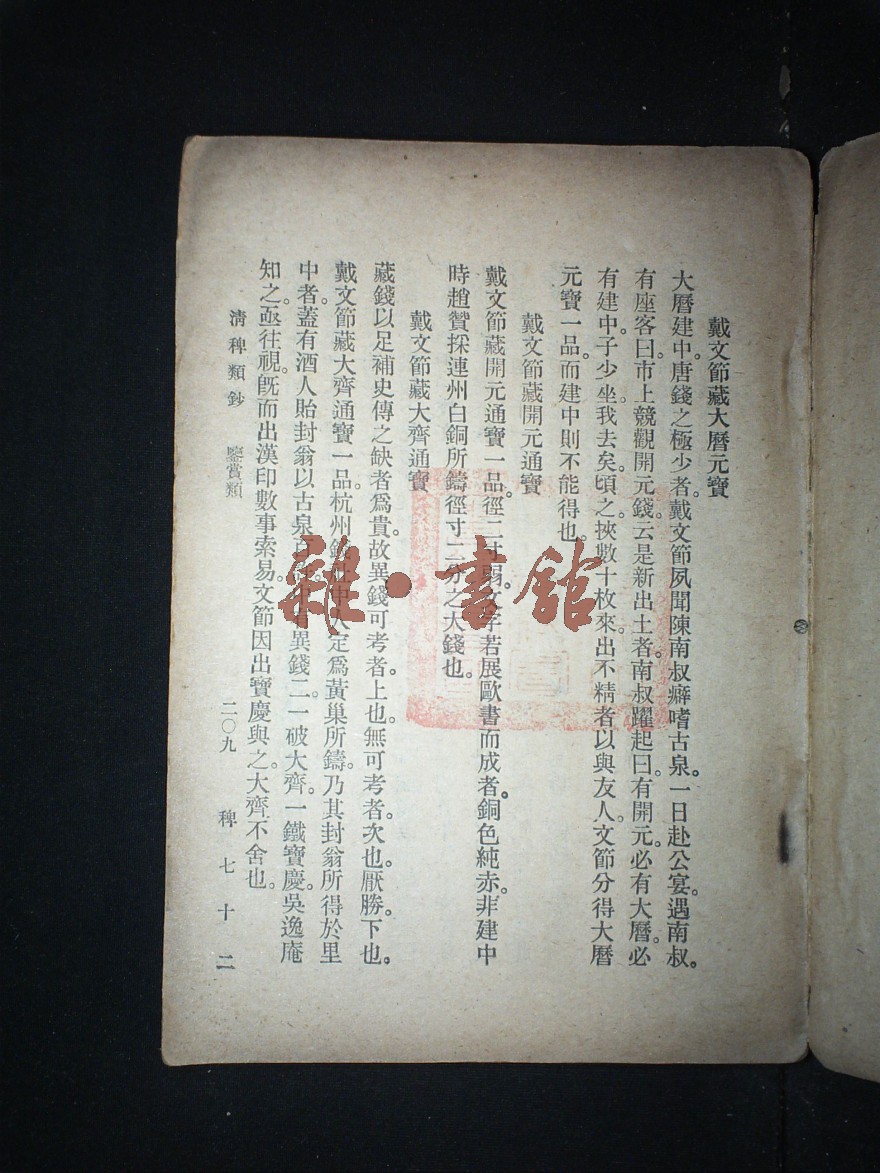 戴文節藏大曆元寶
大曆建中。唐錢之極少者。戴文節夙聞陳南叔癖嗜古泉。一日赴公宴。遇南叔。
有座客曰。市上競觀開元錢。云是新出土者。南叔躍起曰。有開元。必有大曆。必
有建中。子少坐。我去矣。頃之。挾數十枚來。出不精者以與友人。文節分得大曆
元寶一品。而建中則不能得也。
戴文節藏開元通寶
戴文節藏開元通寶一品。徑二寸弱。文字若展歐書而成者。銅色純赤。非建中
時趙贊採連州白銅所鑄徑寸二分之大錢也。
戴文節藏大齊通寶
藏錢以足補史傳之缺者爲貴。故異錢可考者。上也。無可考者。次也。厭勝。下也。
戴文節藏大齊通寶一品。杭州錢社中人定爲黃巢所鑄。乃其封翁所得於里
中者。蓋有酒人貽封翁以古泉百。有異錢二。一破大齊。一鐵寶慶。吳逸庵
知之。亟往視。旣而出漢印數事索易。文節因出寶慶與之。大齊不舍也。
清稗類鈔 鑒賞類 二〇九 稗七十二
雜·書館